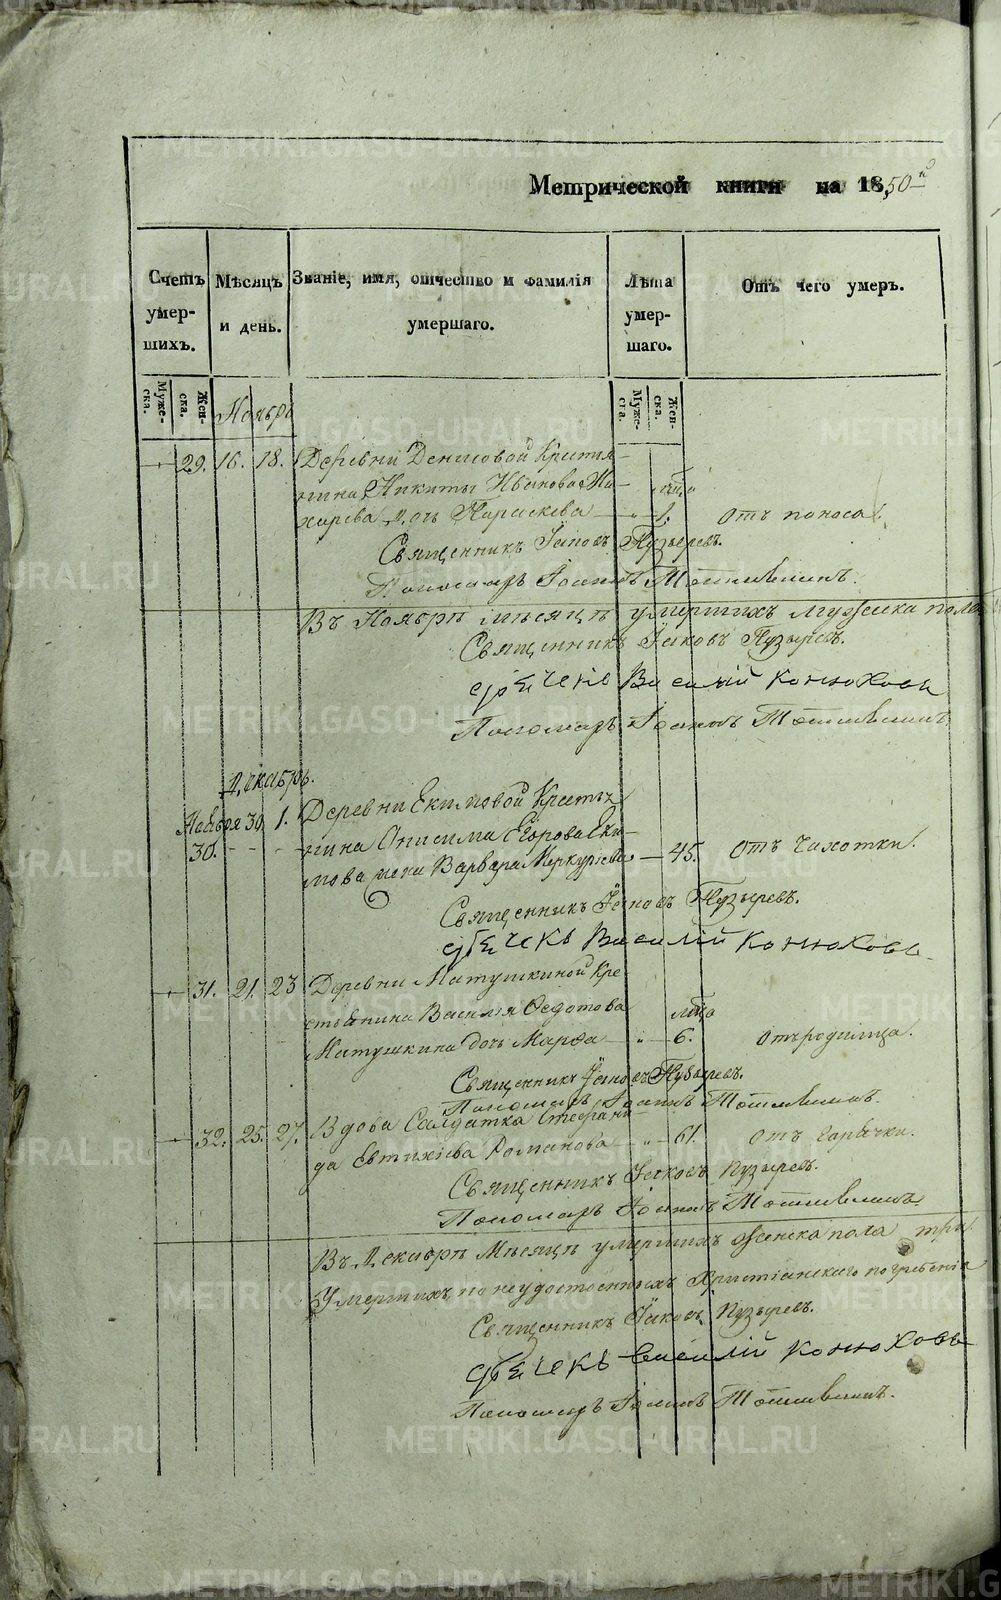 Метрической книги на 1850й
Счетъ умершихъ.
Мѣсяцъ и день.
Званіе, имя, отчество и фамилія умершаго.
Лѣта умершаго.
Отъ чего умеръ.
Мужеска.
Женска.
Мужеска.
Женска.
Ноябрь
29. 16. 18. Деревни Денисовой Крестья-
нина Никиты Иванова Ма-
карова дочь Параскева 1. Отъ поноса.
Священникъ Іаковъ Пузыревъ.
Пономарь Іоаннъ
Въ Ноябрѣ мѣсяцѣ умершихъ мужеска пола
Священникъ Іаковъ Пузыревъ.
Василій Конюховъ
Пономарь Іоаннъ
Декабрь.
Ноября 30. 1. Деревни Екимовой Крестья-
30. нина Онисима Егорова Еки-
мова жена Варвара Меркуріева 45. Отъ чахотки.
Священникъ Іаковъ Пузыревъ.
Василій Конюховъ
31. 21. 23 Деревни Матушкиной Кре-
стьянина Василья Федотова
Матушкина дочь Марфа 6. Отъ родимца.
Священникъ Іаковъ Пузыревъ.
Пономарь Іоаннъ
32. 25. 27. Вдова Солдатка Степани-
да Евтихіева Романова 61. Отъ горячки.
Священникъ Іаковъ Пузыревъ.
Пономарь Іоаннъ
Въ Декабрѣ Мѣсяцѣ умершихъ женска пола три.
Умершихъ, но неудостоенныхъ Христіанскаго погребенія
Священникъ Іаковъ Пузыревъ.
Василій Конюховъ
Пономарь Іоаннъ
METRIKI.GASO-URAL.RU